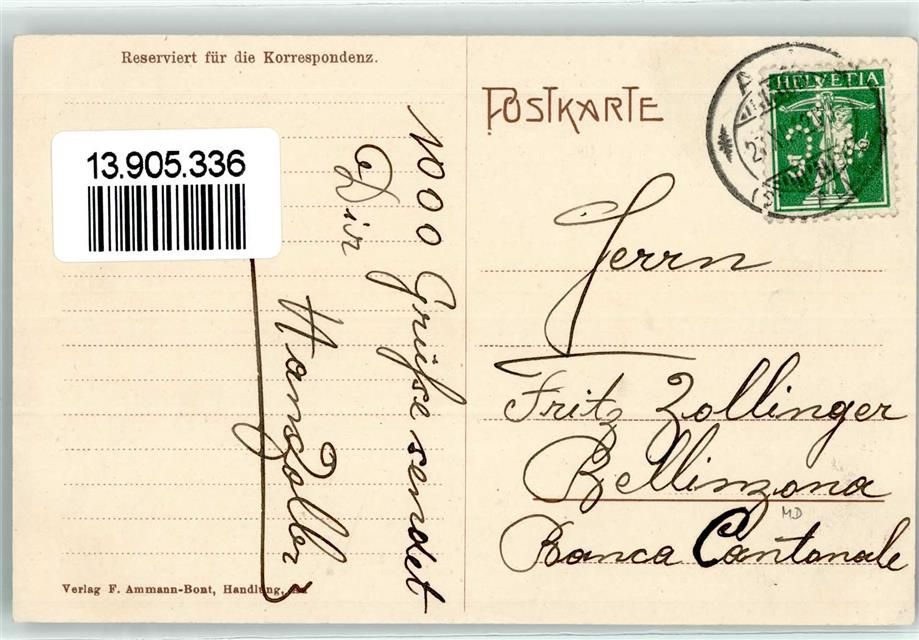 Reserviert für die Korrespondenz.
13.905.336
1000 Grüsse sendet
Dir
Hans Zoller
Verlag F. Ammann-Bont, Handlung,
POSTKARTE
HELVETIA
Herrn
Fritz Zollinger
Bellinzona
MD
Banca Cantonale